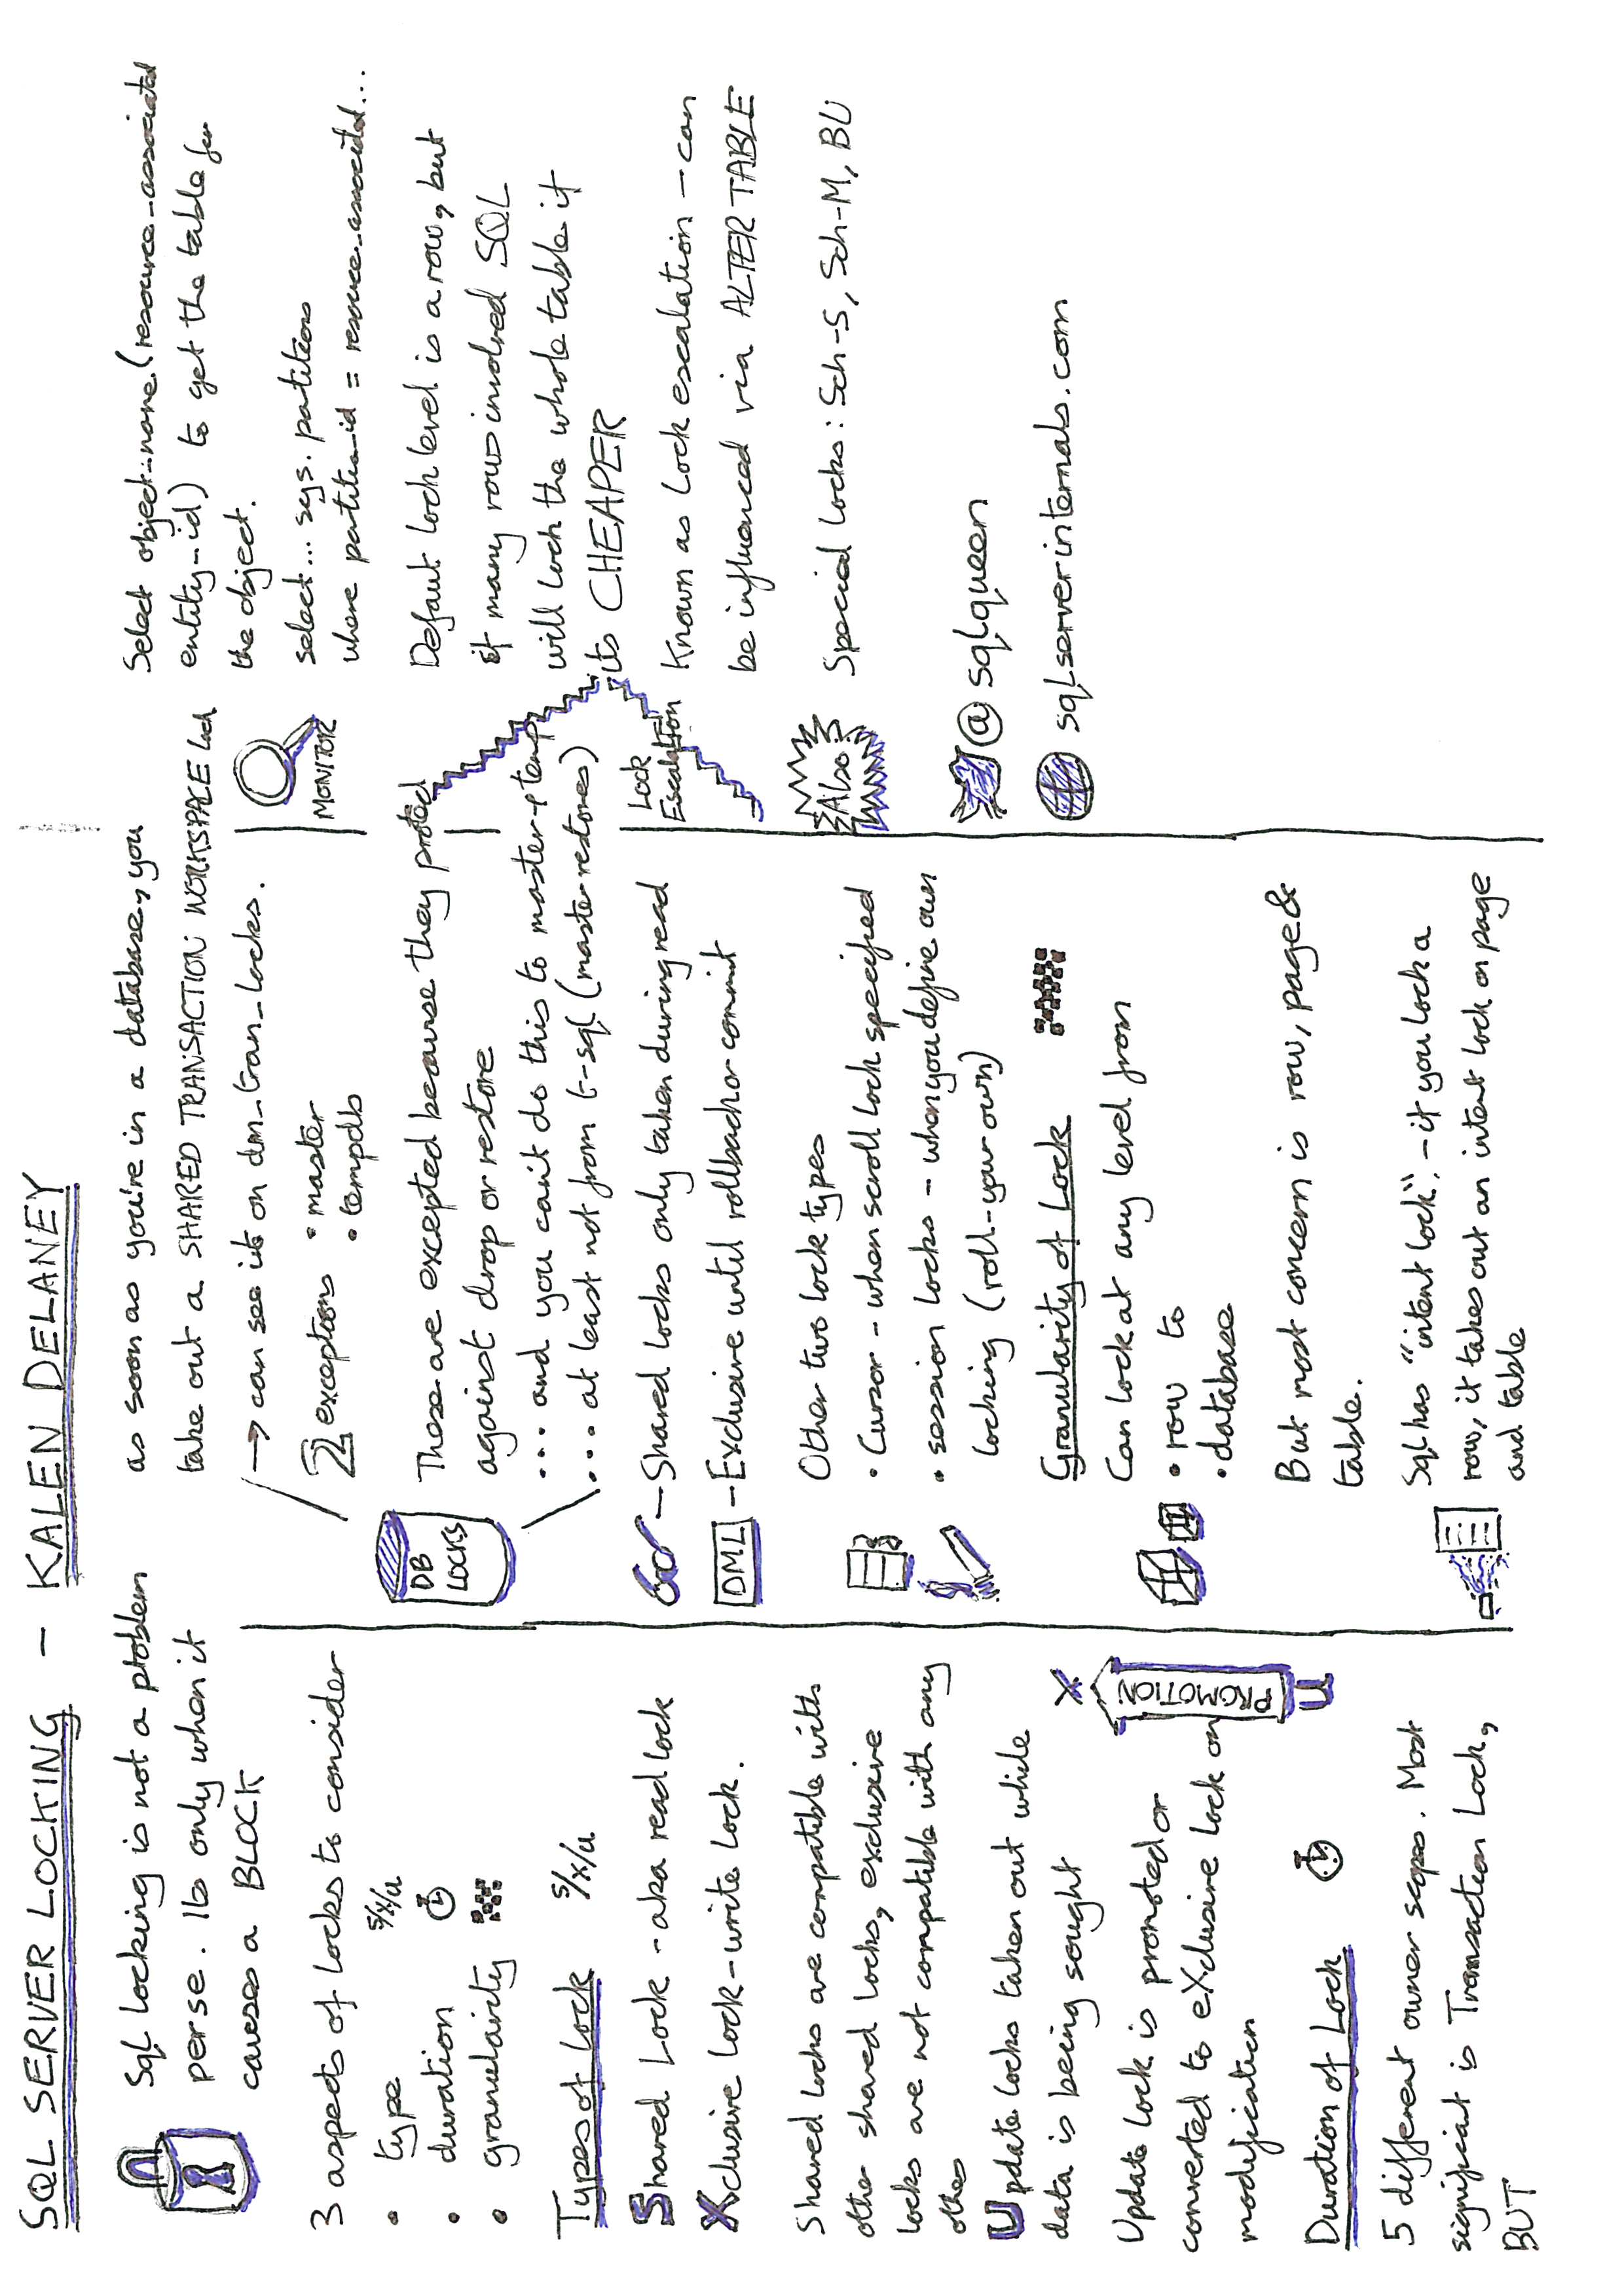 SQL SERVER LOCKING - KALEN DELANEY
Sql locking is not a problem
per se. Its only when it
causes a BLOCK
3 aspects of locks to consider
• type S/X/U
• duration
• granularity
Types of lock S/X/U
Shared Lock - aka read lock
Xclusive lock - write lock.
Shared locks are compatible with
other shared locks, exclusive
locks are not compatible with any
other
Update locks taken out while
data is being sought
Update lock is promoted or
converted to eXclusive lock on
modification
X
PROMOTION
U
Duration of Lock
5 different owner scopes. Most
significant is Transaction Lock,
BUT
as soon as you're in a database, you
take out a SHARED TRANSACTION WORKSPACE lock
→ can see it on dm_tran_locks.
2 exceptions • master
• tempdb
DB
LOCKS
These are excepted because they protect
against drop or restore
... and you can't do this to master + temp
... at least not from t-sql (master restores)
- Shared locks only taken during read
DML - Exclusive until rollback or commit
Other two lock types
• Cursor - when scroll lock specified
• session locks - when you define own
locking (roll-your own)
Granularity of Lock
Can lock at any level from
• row to
• database
But most concern is row, page &
table.
Sql has "intent lock". - if you lock a
row, it takes out an intent lock on page
and table
MONITOR
Select object_name (resource_associated
entity_id) to get the table for
the object.
select... sys. partitions
where partition_id = resource_associated...
Defaut lock level is a row, but
if many rows involved SQL
will lock the whole table if
its CHEAPER
Lock
Escalation
Known as lock escalation - can
be influenced via ALTER TABLE
Also
Special locks: Sch-S, Sch-M, BU
@sqlqueen
sqlserverinternals.com